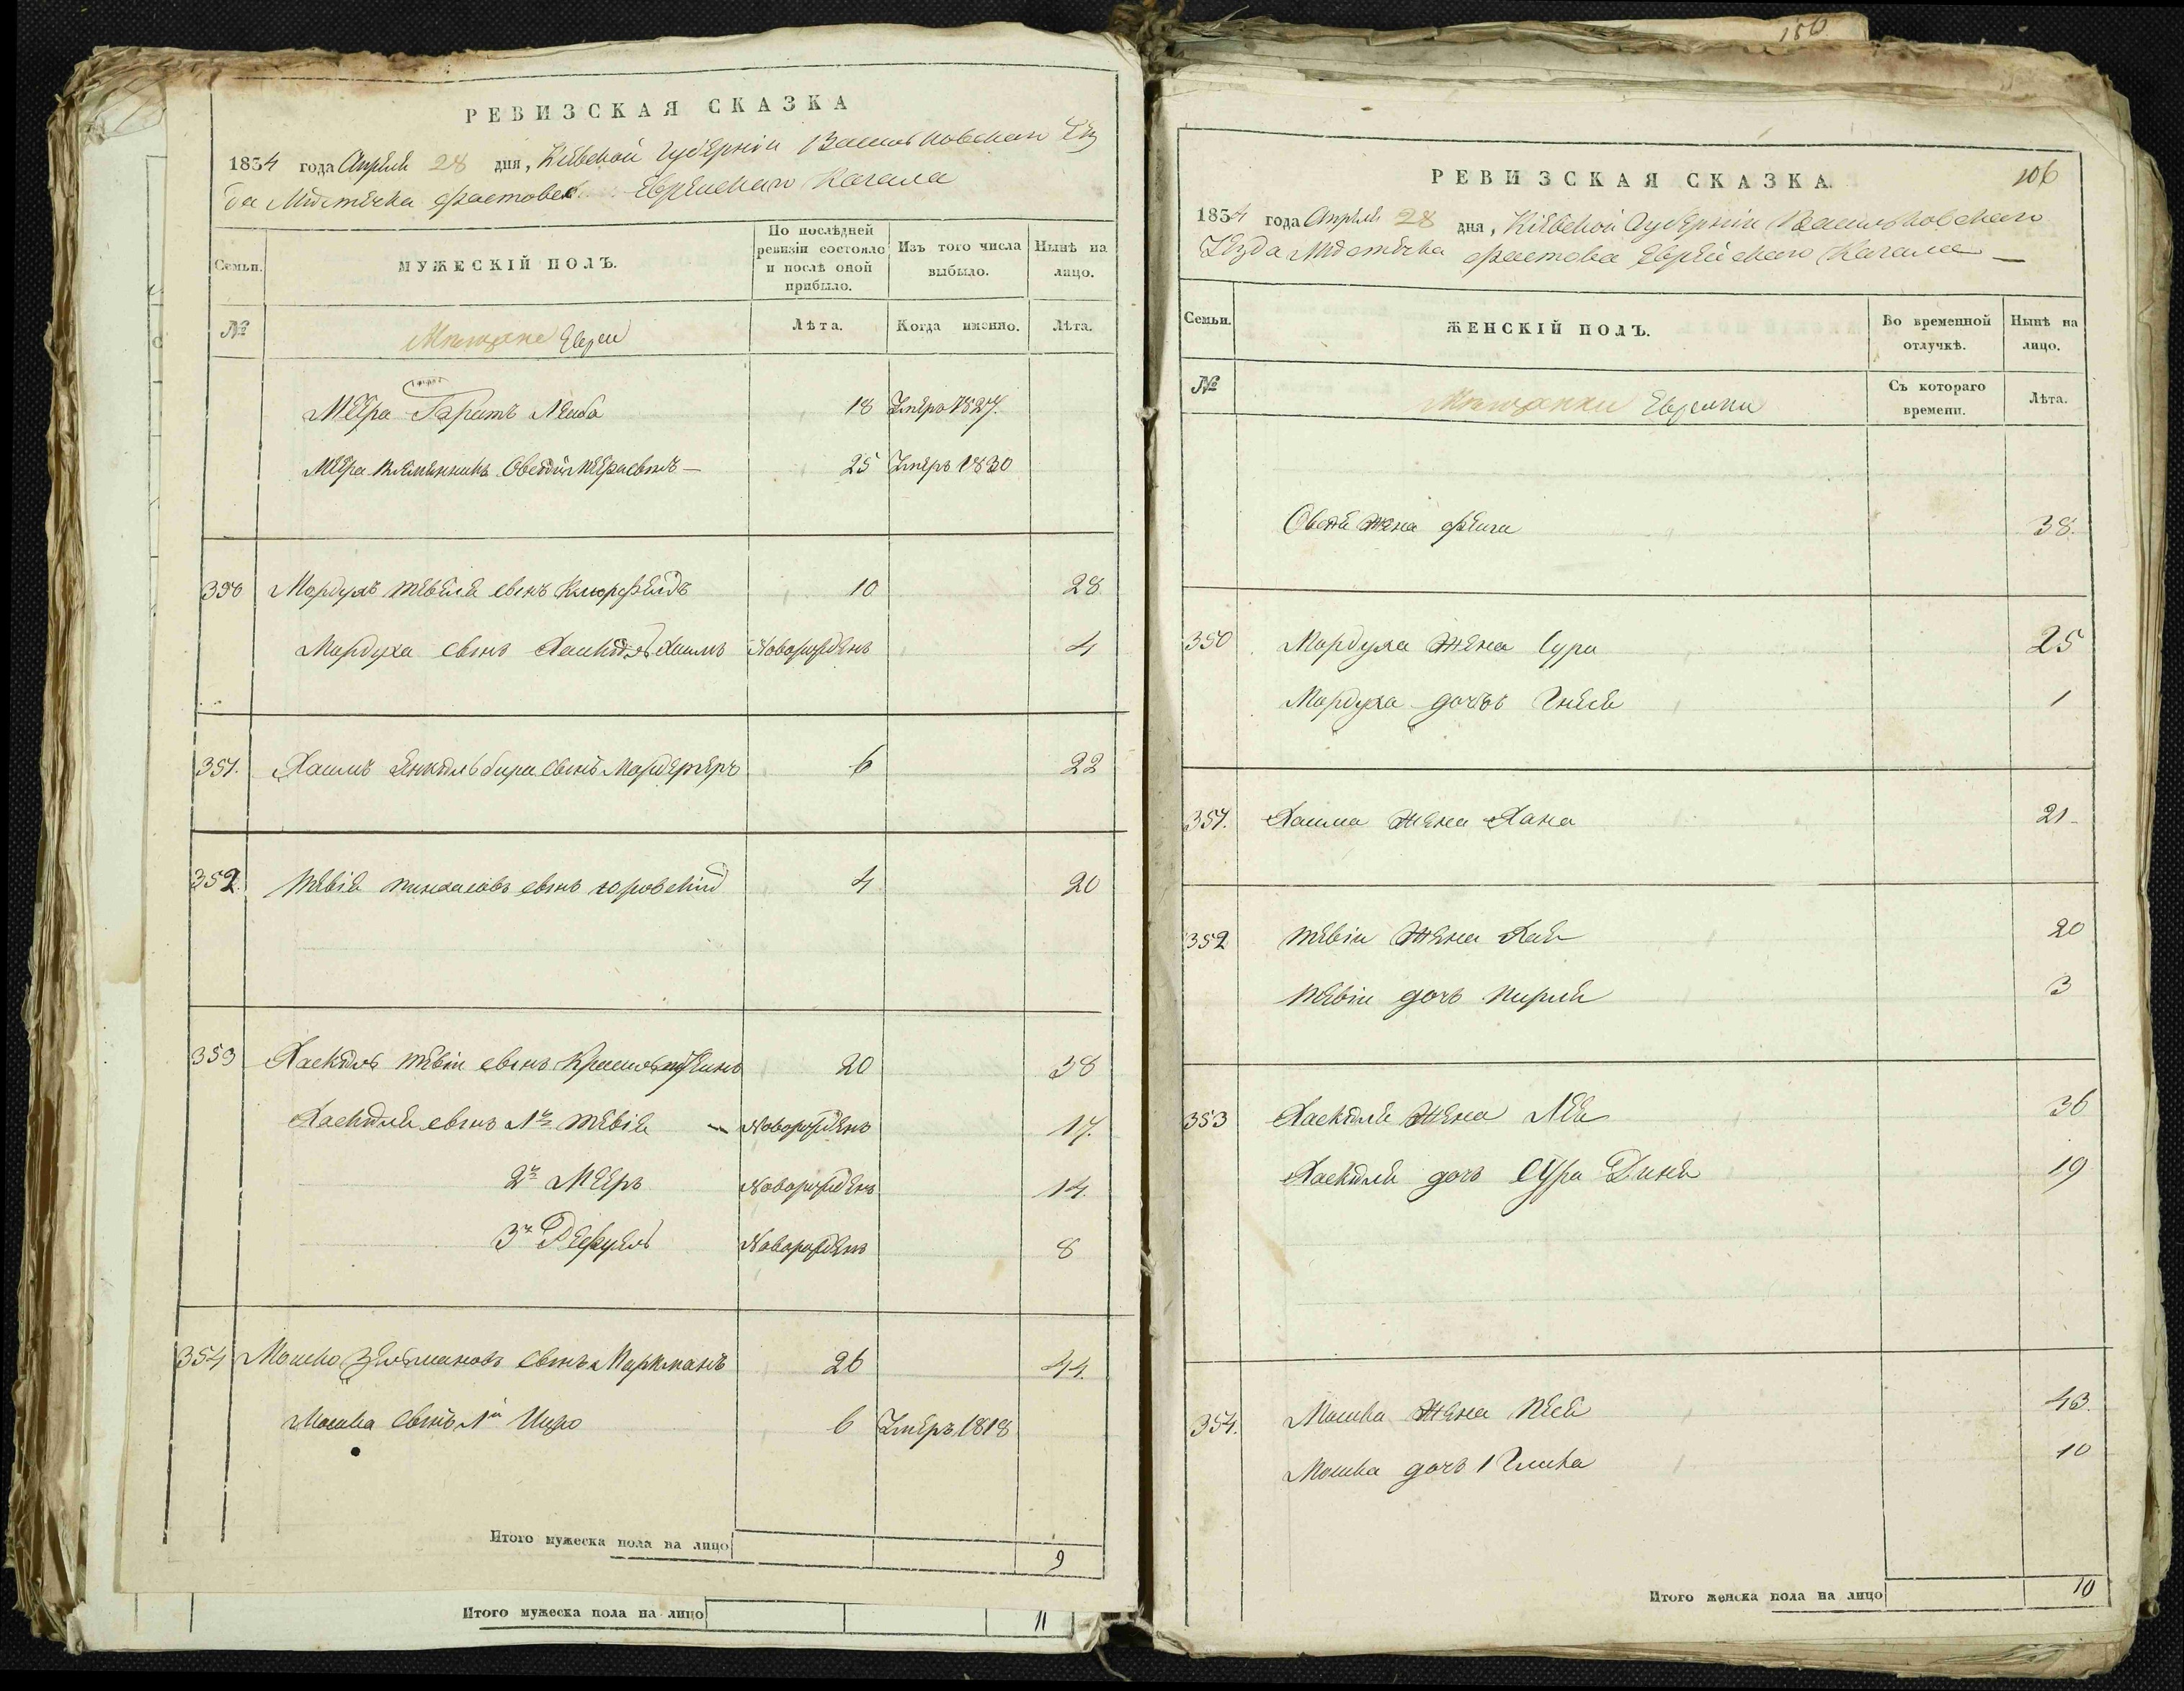 РЕВИЗСКАЯ СКАЗКА
1834 года Апреля 28 дня, Кіевской Губерніи Васильковскаго Уез
да Местечка Фастова Еврейскаго Кагала
Семьи.
МУЖЕСКІЙ ПОЛЪ.
По послѣдней ревизіи состояло и послѣ оной прибыло.
Изъ того числа выбыло.
Нынѣ на лицо.
№
Мещане Евреи
Лѣта.
Когда именно.
Лѣта.
Меера Лейба 18 Умеръ 1827.
Меера племенникъ Овсей 25 Умеръ 1830
350 Мордухъ Тевеля сынъ 10 28
Мордуха сынъ Хаимъ Новорожденъ 4
351. Хаимъ сынъ 6 22
352. Тевія сынъ Юровскій 4 20
353 Хаскель Тевіи сынъ 20 38
Хаскеля сынъ 1й Тевія Новорожденъ 17.
2й Мееръ Новорожденъ 14.
3й Рефуель Новорожденъ 8
354 Мошко Зельмановъ сынъ Паркманъ 26 44.
Мошка сынъ 1й 6 Умеръ 1818
Итого мужеска пола на лицо 9
Итого мужеска пола на лицо 11
186
106
РЕВИЗСКАЯ СКАЗКА.
1834 года Апреля 28 дня, Кіевской Губерніи Васильковскаго
Уезда Местечка Фастова Еврейскаго Кагала
Семьи.
ЖЕНСКІЙ ПОЛЪ.
Во временной отлучкѣ.
Нынѣ на лицо.
№
Мещанки Еврейки
Съ котораго времени.
Лѣта.
Овсея жена Фейга 38.
350 Мордуха жена Сура 25
Мордуха дочь 1
351. Хаима жена Хана 21
352 Тевіи жена Хая 20
Тевіи дочь Перля 3
353 Хаскеля жена Лея 36
Хаскеля дочь Сура Диня 19
354. Мошка жена Песя 43.
Мошка дочь 10
Итого женска пола на лицо 10